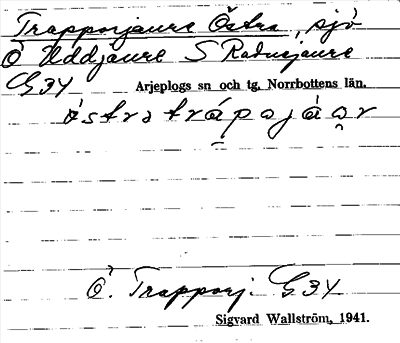 Trapporjaure Östra, sjö
Ö Uddjaure S Radnejaure
G34 Arjeplogs sn och tg, Norrbottens län.
Ö. Trapporj. G34
Sigvard Wallström, 1941.